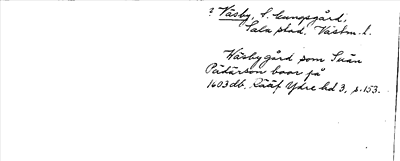 ? Väsby, S. kungsgård,
Sala stad. Västm. l.
Wäsbygård som Suän
Pädärson boor på
1603 db. Rääf Ydre hd 3, s. 153.